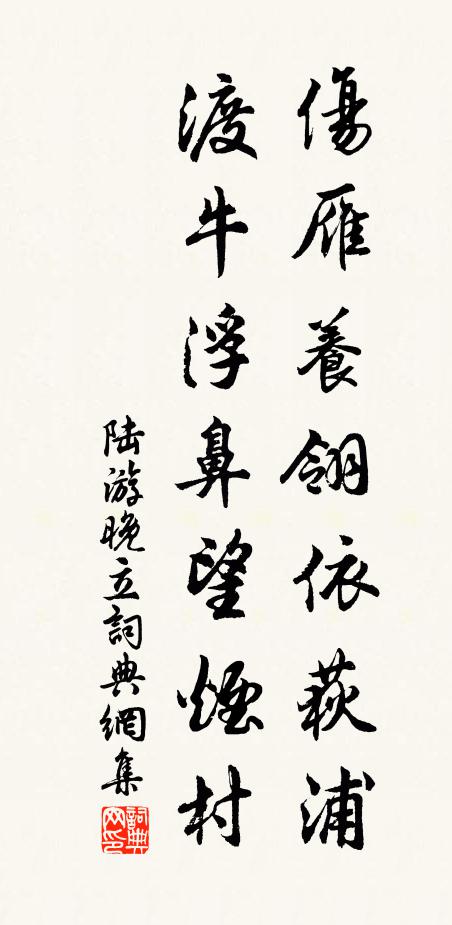 傷雁養翎依荻浦
渡牛浮鼻望煙村
陸游晚立詞典網集
詞典网印